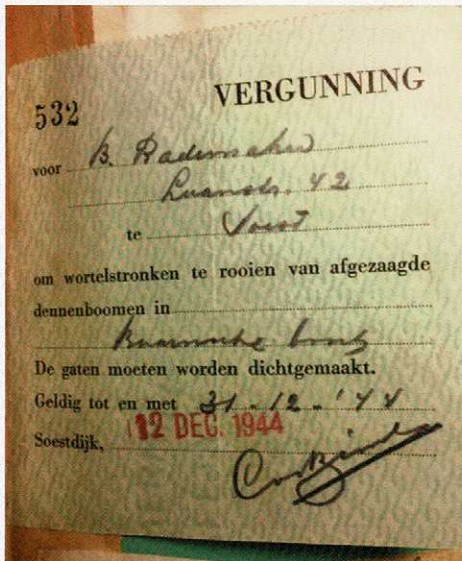 532
VERGUNNING
voor B. Rademaker
42
te Soest
om wortelstronken te rooien van afgezaagde
dennenboomen in
De gaten moeten worden dichtgemaakt.
Geldig tot en met 31-12-'44
Soestdijk, 12 DEC. 1944